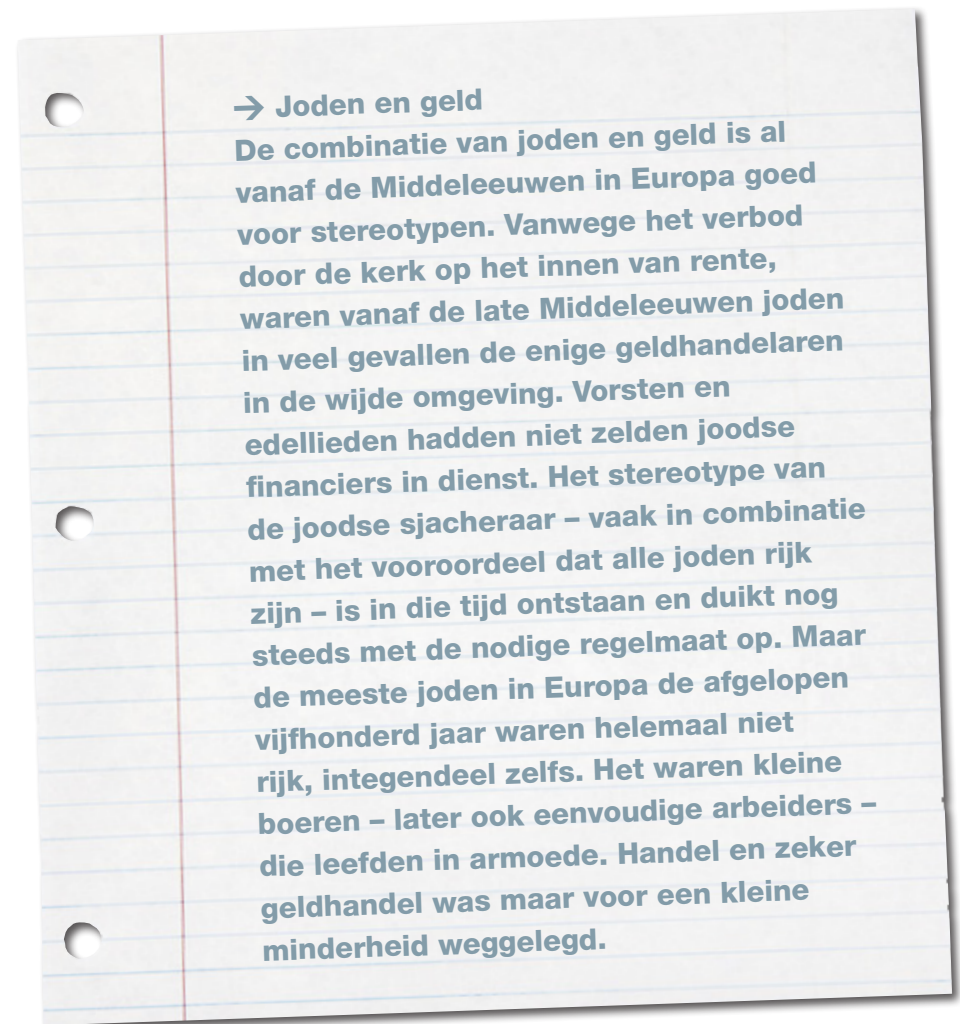 → Joden en geld
De combinatie van joden en geld is al
vanaf de Middeleeuwen in Europa goed
voor stereotypen. Vanwege het verbod
door de kerk op het innen van rente,
waren vanaf de late Middeleeuwen joden
in veel gevallen de enige geldhandelaren
in de wijde omgeving. Vorsten en
edellieden hadden niet zelden joodse
financiers in dienst. Het stereotype van
de joodse sjacheraar – vaak in combinatie
met het vooroordeel dat alle joden rijk
zijn – is in die tijd ontstaan en duikt nog
steeds met de nodige regelmaat op. Maar
de meeste joden in Europa de afgelopen
vijfhonderd jaar waren helemaal niet
rijk, integendeel zelfs. Het waren kleine
boeren – later ook eenvoudige arbeiders –
die leefden in armoede. Handel en zeker
geldhandel was maar voor een kleine
minderheid weggelegd.